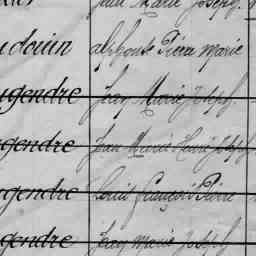 Jean Marie Joseph
udouin Alphonse Pierre Marie
ugendre Jean Marie Joseph
gendre Jean Marie Joseph
ugendre Louis François Pierre
gendre Jean Marie Joseph